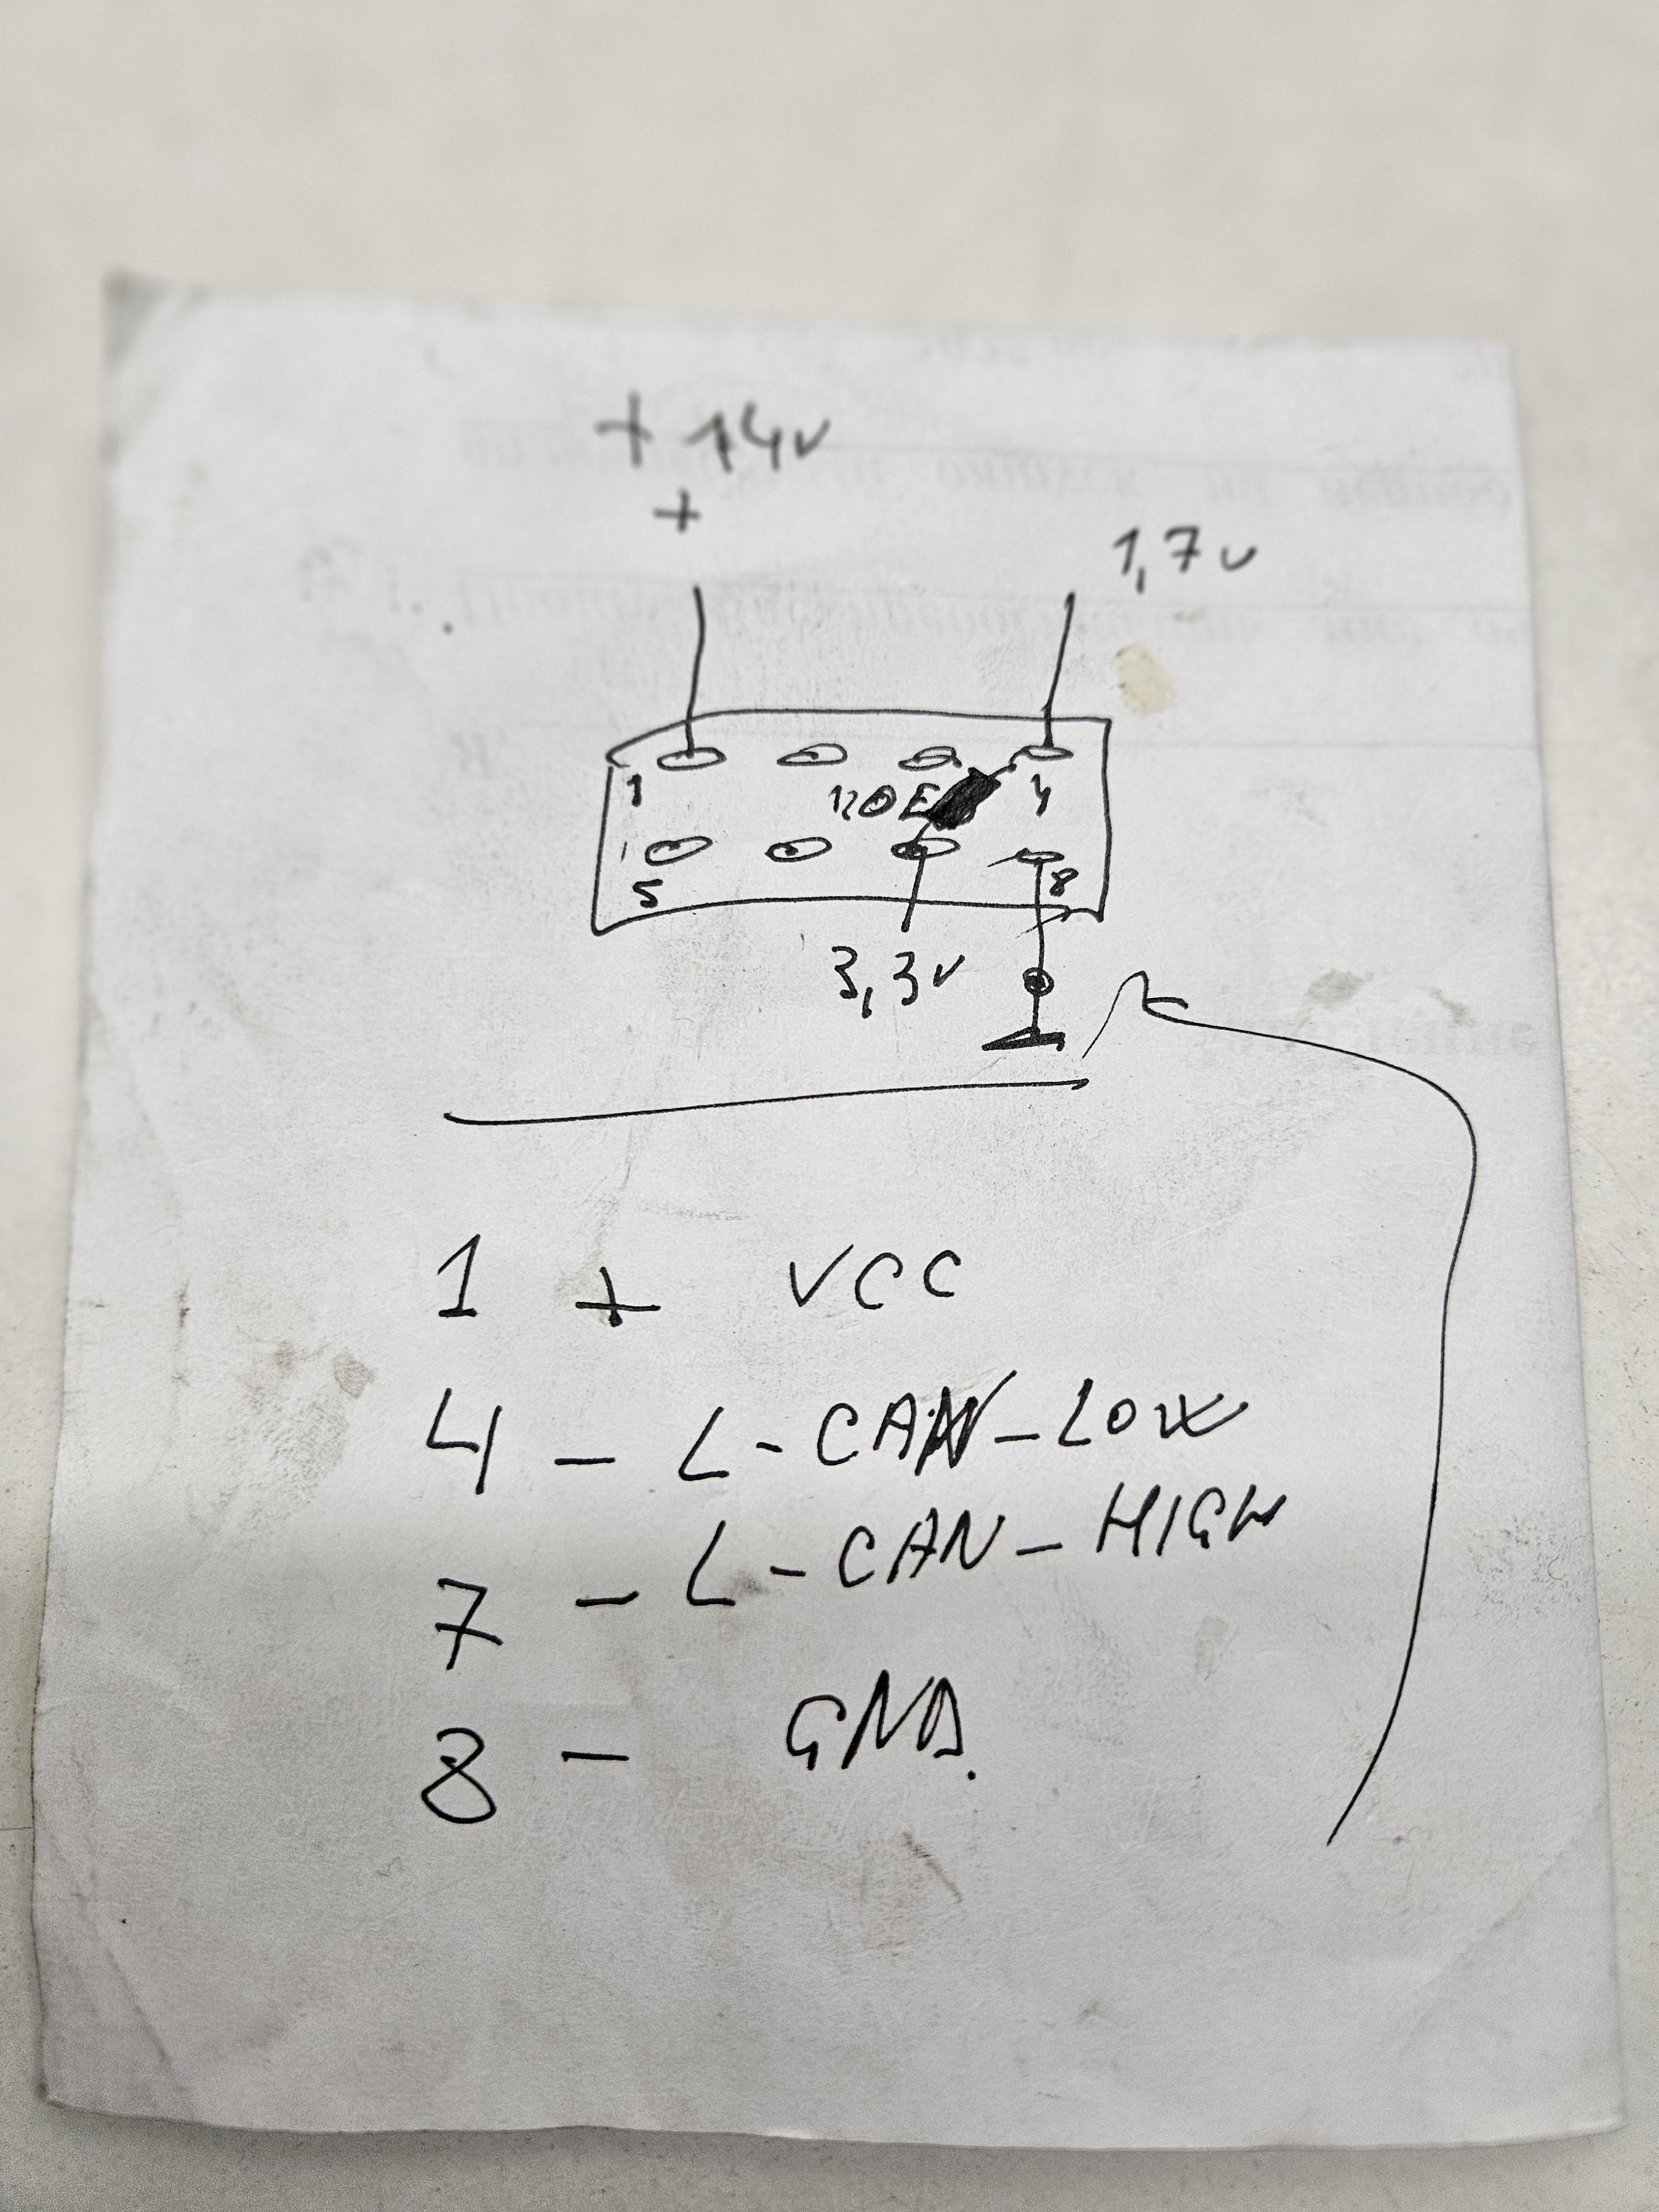 + 14v
+
1,7v
1 4
120E
5 8
3,3v
1 + VCC
4 - L-CAN-LOW
7 - L-CAN-HIGH
8 - GND.